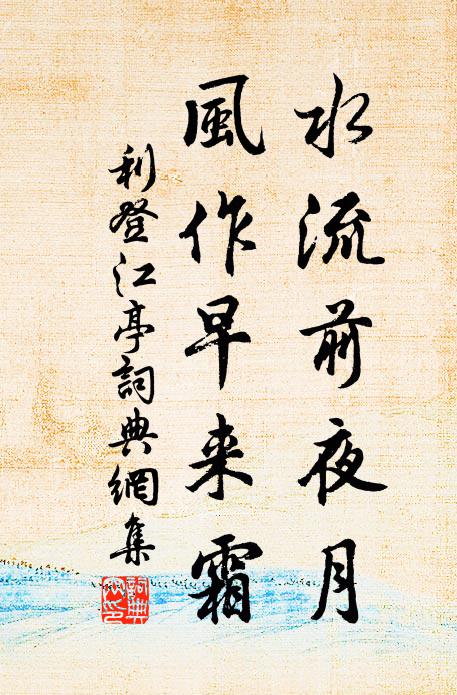 水流前夜月
風作早来霜
利登江亭詞典網集